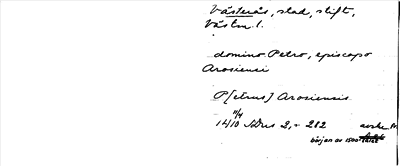 Västerås, stad, stift,
Västm l.
domino Petro, episcopo
Arosiensi
P[etrus] Arosiensis
11/4
1410 2,- 282
början av 1500-